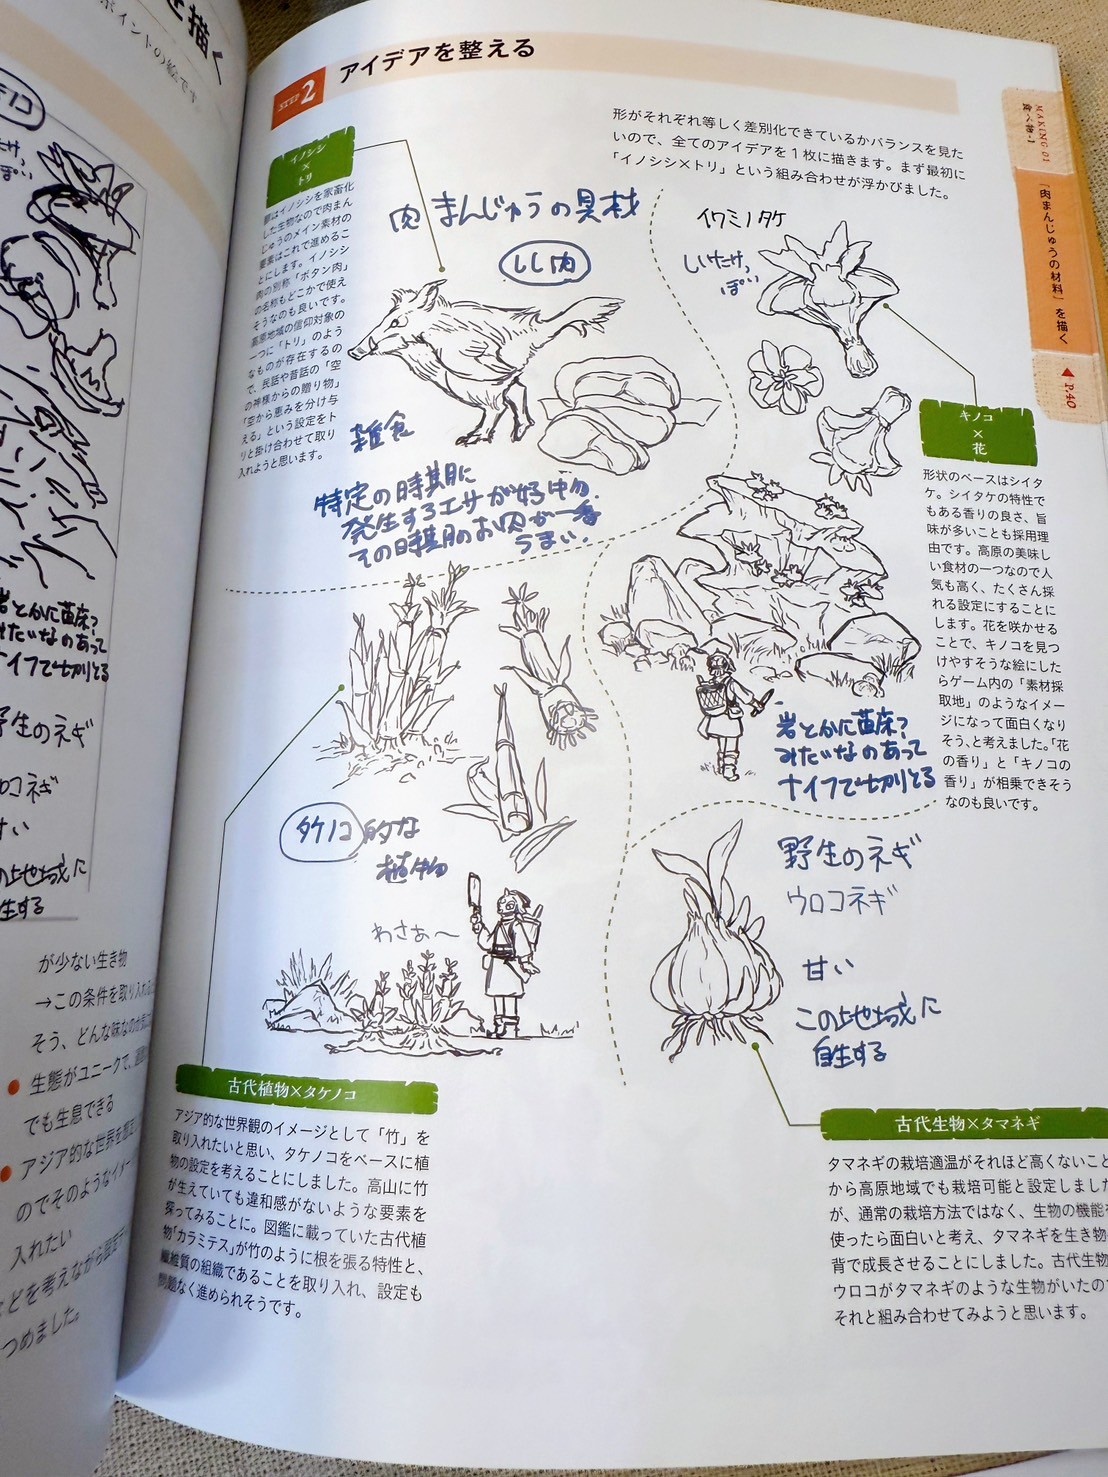 を描く
ポイントの絵です。
STEP 2
アイデアを整える
形がそれぞれ等しく差別化できているかバランスを見た
いので、全てのアイデアを1枚に描きます。まず最初に
「イノシシ×トリ」という組み合わせが浮かびました。
イノシシ
×
トリ
豚はイノシシを家畜化
した生物なので肉まん
じゅうのメイン素材の
要素はこれで進めるこ
とにします。イノシシ
肉の別称「ボタン肉」
の名称もどこかで使え
そうなのも良いです。
高原地域の信仰対象の
一つに「トリ」のよう
なものが存在するの
で、民話や昔話の「空
の神様からの贈り物」
「空から恵みを分け与
える」という設定をト
リと掛け合わせて取り
入れようと思います。
肉まんじゅうの具材
しし肉
雑食
特定の時期に
発生するエサが好物。
その時期のお肉が一番
うまい。
イワミノタケ
しいたけっ
ぽい
キノコ
×
花
形状のベースはシイタ
ケ。シイタケの特性で
もある香りの良さ、旨
味が多いことも採用理
由です。高原の美味し
い食材の一つなので人
気も高く、たくさん採
れる設定にすることに
します。花を咲かせる
ことで、キノコを見つ
けやすそうな絵にした
らゲーム内の「素材採
取地」のようなイメー
ジになって面白くなり
そう、と考えました。「花
の香り」と「キノコの
香り」が相乗できそう
なのも良いです。
岩とかに菌床?
みたいなのあって
ナイフで切りとる
タケノコ的な
植物
わさぁ〜
野生のネギ
ウロコネギ
甘い
この地域に
自生する
古代植物×タケノコ
アジア的な世界観のイメージとして「竹」を
取り入れたいと思い、タケノコをベースに植
物の設定を考えることにしました。高山に竹
が生えていても違和感がないような要素を
探ってみることに。図鑑に載っていた古代植
物「カラミテス」が竹のように根を張る特性と、
繊維質の組織であることを取り入れ、設定も
問題なく進められそうです。
古代生物×タマネギ
タマネギの栽培適温がそれほど高くないこと
から高原地域でも栽培可能と設定しました
が、通常の栽培方法ではなく、生物の機能を
使ったら面白いと考え、タマネギを生き物の
背で成長させることにしました。古代生物
ウロコがタマネギのような生物がいたので
それと組み合わせてみようと思います。
MAKING 01
「肉まんじゅうの材料」を描く
▲ P.40
岩とかに菌床?
みたいなのあって
ナイフで切りとる
野生のネギ
ロコネギ
甘い
の地域に
生する
が少ない生き物
→この条件を取り入れ
そう、どんな味なのか
生態がユニークで、
でも生息できる
アジア的な世界を
のでそのようなイメー
入れたい
などを考えながら
つめました。